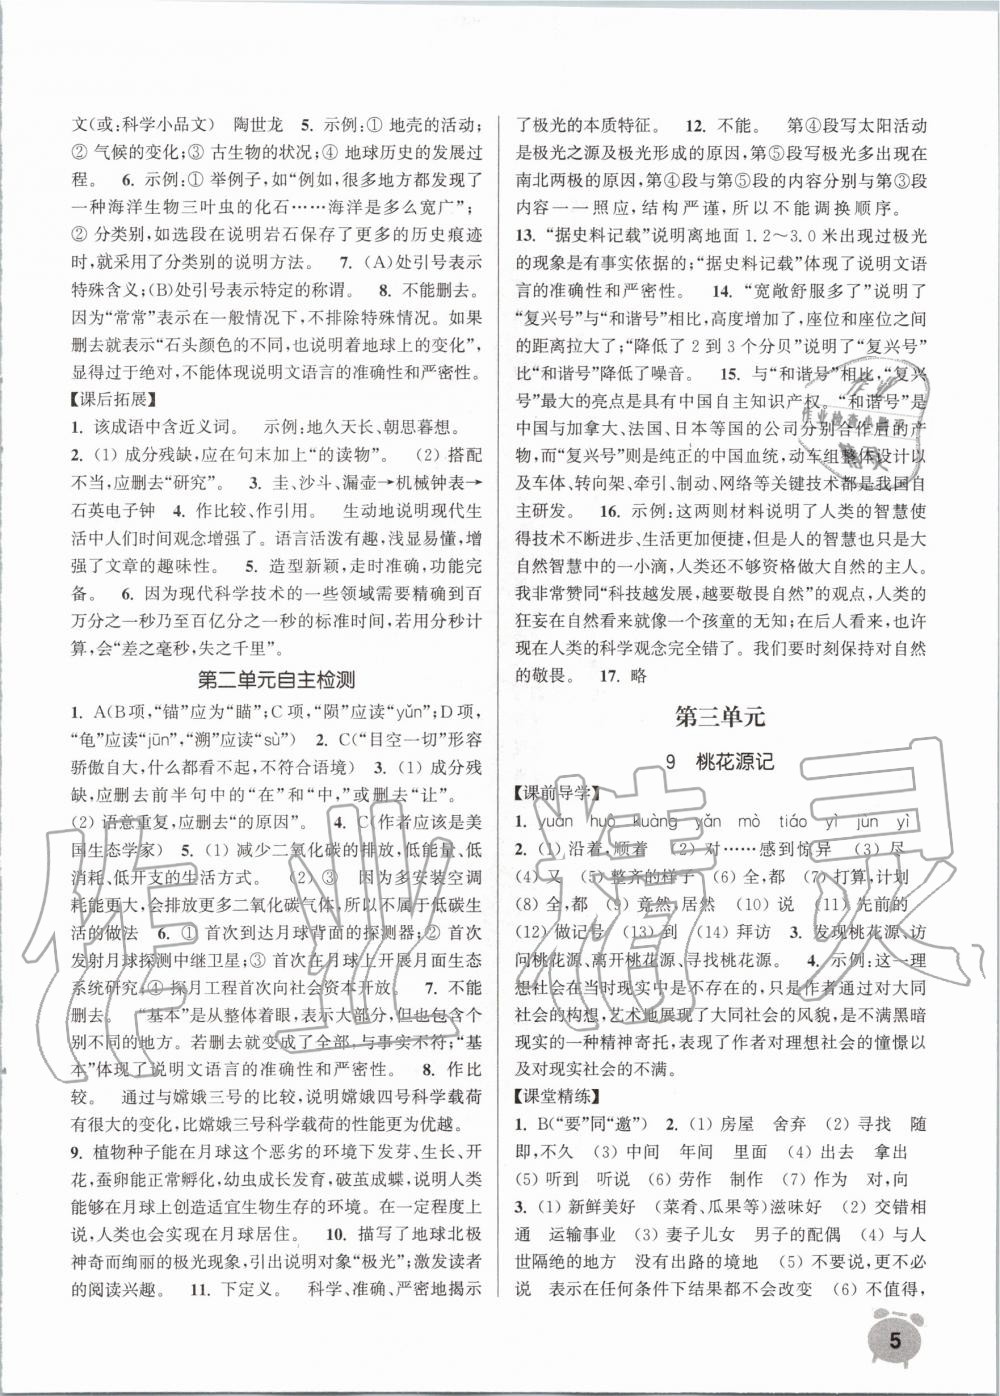 文(或:科学小品文)　陶世龙　5. 示例:① 地壳的活动;
② 气候的变化;③ 古生物的状况;④ 地球历史的发展过
程。　6. 示例:① 举例子,如“例如,很多地方都发现了
一种海洋生物三叶虫的化石……海洋是多么宽广”;
② 分类别,如选段在说明岩石保存下来的历史痕迹
时,就采用了分类别的说明方法。　7. (A)处引号表示
特殊含义;(B)处引号表示特定的称谓。　8. 不能删去。
因为“常常”表示在一般情况下,不排除特殊情况。如果
删去就表示“石头颜色的不同,也说明着地球上的变化”,
过于绝对,不能体现说明文语言的准确性和严密性。
【课后拓展】
1. 该成语中含近义词。　示例:地久天长、朝思暮想。
2. (1) 成分残缺,应在句末加上“的读物”。　(2) 搭配
不当,应删去“研究”。　3. 圭、沙斗、漏壶→机械钟表→
石英电子钟　4. 作比较、作引用。　生动地说明现代生
活中人们时间观念增强了。语言活泼有趣,浅显易懂,增
强了文章的趣味性。　5. 造型新颖,走时准确,功能完
备。　6. 因为现代科学技术的一些领域需要精确到百
万分之一秒乃至百亿分之一秒的标准时间,若用分秒计
算,会“差之毫秒,失之千里”。
第二单元自主检测
1. A(B项,“锚”应为“瞄”;C项,“陨”应读“yǔn”;D项,
“龟”应读“jūn”,“溯”应读“sù”)　2. C(“目空一切”形容
骄傲自大,什么都看不起,不符合语境)　3. (1) 成分残
缺,应删去前半句中的“在”和“中”,或删去“让”。
(2) 语意重复,应删去“的原因”。　4. C(作者应该是美
国生态学家)　5. (1) 减少二氧化碳的排放,低能量、低
消耗、低开支的生活方式。　(2) ③　因为多安装空调
耗能更大,会排放更多二氧化碳气体,所以不属于低碳生
活的做法　6. ① 首次到达月球背面的探测器;② 首次
发射月球探测中继卫星;③ 首次在月球上开展月面生态
系统研究;④ 探月工程首次向社会资本开放。　7. 不能
删去。　“基本”是从整体着眼,表示大部分,但也包含个
别不同的地方。若删去就变成了全部,与事实不符;“基
本”体现了说明文语言的准确性和严密性。　8. 作比
较。　通过与嫦娥三号的比较,说明嫦娥四号科学载荷
有很大的变化,突出嫦娥三号科学载荷的性能更为优越。
9. 植物种子能在月球这个恶劣的环境下发芽、生长、开
花,蚕卵能正常孵化,幼虫成长发育,破茧成蝶,说明人类
能在月球上创造适宜生物生存的环境。在一定程度上
说,人类也会实现在月球居住。　10. 描写了地球北极
神奇而绚丽的极光现象,引出说明对象“极光”;激发读者
的阅读兴趣。　11. 下定义。　科学、准确、严密地揭示
了极光的本质特征。　12. 不能。　第④段写太阳活动
是极光之源及极光形成的原因,第⑤段写极光多出现在
南北两极的原因,第④段与第⑤段的内容分别与第③段
内容一一照应,结构严谨,所以不能调换顺序。
13. “据史料记载”说明离地面1.2～3.0米出现过极光
的现象是有事实依据的;“据史料记载”体现了说明文语
言的准确性和严密性。　14. “宽敞舒服多了”说明了
“复兴号”与“和谐号”相比,高度增加了,座位和座位之间
的距离拉大了;“降低了2到3个分贝”说明了“复兴号”
比“和谐号”降低了噪音。　15. 与“和谐号”相比,“复兴
号”最大的亮点是具有中国自主知识产权。“和谐号”是
中国与加拿大、法国、日本等国的公司分别合作后的产
物,而“复兴号”则是纯正的中国血统,动车组整体设计以
及车体、转向架、牵引、制动、网络等关键技术都是我国自
主研发。　16. 示例:这两则材料说明了人类的智慧使
得技术不断进步、生活更加便捷,但是,人的智慧也只是大
自然智慧中的一小滴,人类远不够资格做大自然的主人。
我非常赞同“科技越发展,越要敬畏自然”的观点,人类的
狂妄在自然看来就像一个孩童的无知;在后人看来,也许
现在人类的科学观念完全错了。我们要时刻保持对自然
的敬畏。　17. 略
第三单元
9　桃花源记
【课前导学】
1. yuán huò kuàng yǎn mò tiáo yì jùn yì
2. (1) 沿着,顺着　(2) 对……感到惊异　(3) 尽
(4) 又　(5) 整齐的样子　(6) 全,都　(7) 打算,计划
(8) 全,都　(9) 竟然,居然　(10) 说　(11) 先前的
(12) 做记号　(13) 到　(14) 拜访　3. 发现桃花源、访
问桃花源、离开桃花源、寻找桃花源。　4. 示例:这一理
想社会在当时现实中是不存在的,只是作者通过对大同
社会的构想,艺术地展现了大同社会的风貌,是不满黑暗
现实的一种精神寄托,表现了作者对理想社会的憧憬以
及对现实社会的不满。
【课堂精练】
1. B(“要”同“邀”)　2. (1) 房屋　舍弃　(2) 寻找　随
即,不久　(3) 中间　年间　里面　(4) 出去　拿出
(5) 听到　听说　(6) 劳作　制作　(7) 对,向
3. (1) 新鲜美好　(菜肴、瓜果等)滋味好　(2) 交错相
通　运输事业　(3) 妻子儿女　男子的配偶　(4) 与人
世隔绝的地方　没有出路的境地　(5) 不要说,更不必
说　表示在任何条件下结果都不会改变　(6) 不值得,
5
作业精灵
作业检查小助手
精灵